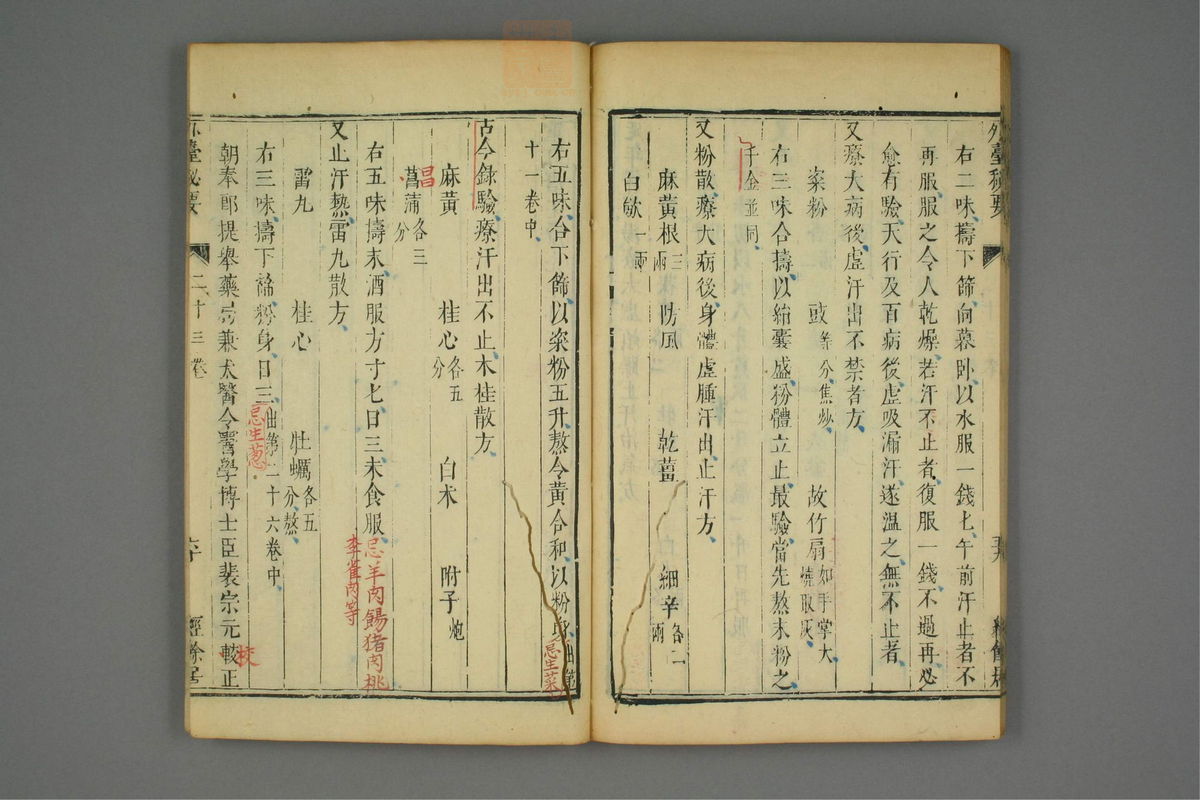 外臺秘要
右二味擣下篩向暮臥以水服一錢匕午前汗止者不
再服服之令人乾燥若汗不止者復服一錢不過再必
愈有驗天行及百病後虛吸漏汗遂溫之無不止者
又療大病後虛汗出不禁者方
粢粉 豉等分焦炒 故竹扇如手掌大燒取灰
右三味合擣以絹囊盛粉體立止最驗當先熬末粉之
千金並同
又粉散療大病後身體虛腫汗出止汗方
麻黃根三兩 防風 乾薑 細辛各二兩
白斂一兩
右五味合下篩以粢粉五升熬令黃合和以粉身出第
忌生菜
十一卷中
古今錄驗療汗出不止木桂散方
麻黃 桂心各五分 白木 附子炮
昌
菖蒲各三分
右五味擣末酒服方寸匕日三末食服
忌羊肉餳猪肉桃
李雀肉等
又止汗熱雷九散方
雷丸 桂心 牡蠣各五分熬
右三味擣下篩粉身日三出第二十六卷中
忌生葱
朝奉郎提舉藥局兼太醫令醫學博士臣裴宗元較正
校
外臺秘要 二十三卷 經餘居